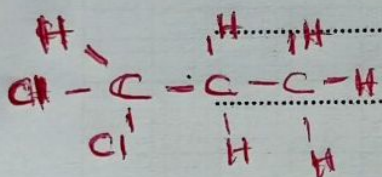 H H H
Cl - C - C - C - H
Cl H H